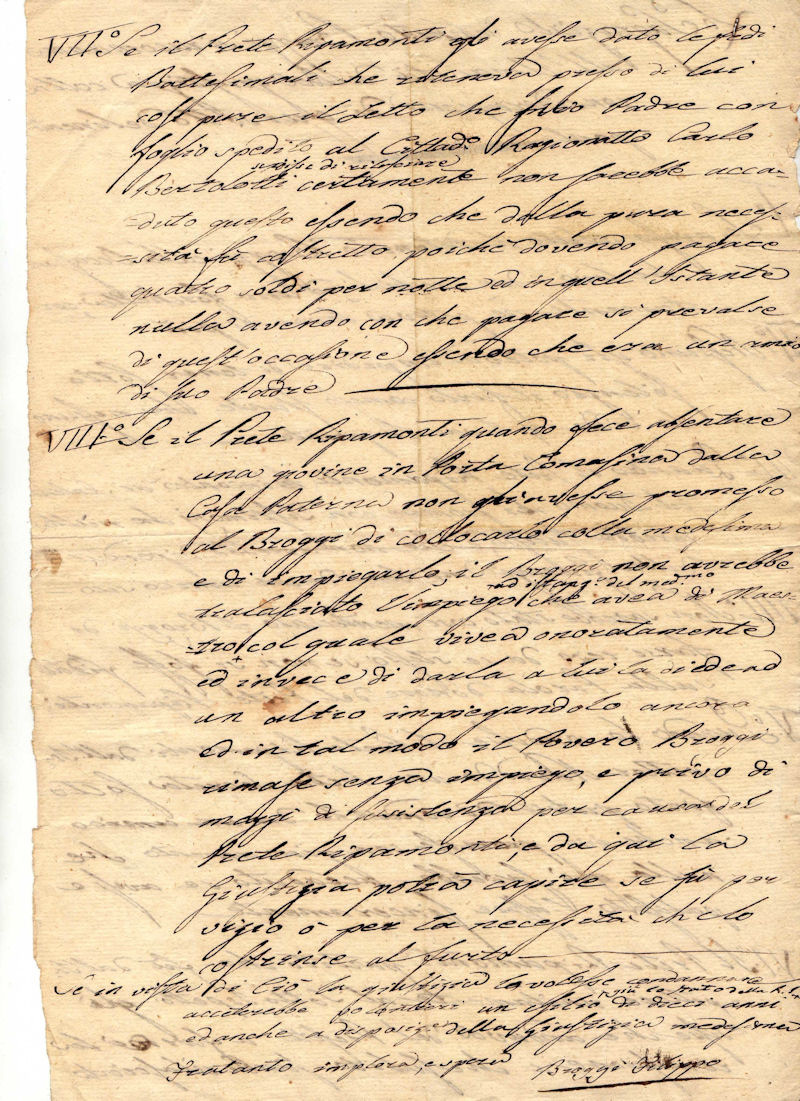 VII.º Se il Prete Ripamonti gli avesse dato le fedi
Battesimali che riteneva presso di lui
così pure il Letto che suo Padre con
foglio spedito al Cittadº Ragionatto Carlo
Bertolotti certamente non sarebbe acca-
duto questo essendo che dalla pura neces-
sità fù costretto poichè dovendo pagare
quatro soldi per notte ed in quell'istante
nulla avendo con che pagare si prevalse
di quest'occasione essendo che era un amico
di suo Padre
VIII.º Se il Prete Ripamonti quando fece assentare
una giovine in Porta Comasina dalla
Casa Paterna non gli avesse promesso
al Broggi di collocarlo colla medesima
e di impiegarlo, il Broggi non avrebbe
ad istanza del med.mo
tralasciato l'impiego che avea di Maes-
tro col quale vivea onoratamente
ed invece di darla a lui la diede ad
un altro impiegandolo ancora
ed in tal modo il Povero Broggi
rimase senza impiego, e privo di
mezzi di susistenza per causa del
Prete Ripamonti, e da qui la
Giustizia potrà capire se fù per
vizio o per la necessità che lo
ostrinse al furto
Se in vista di Ciò la giustizia lo volesse condannare
acceterebbe volontieri un esilio di dieci anni
ed anche a disposize della giustizia medesima
Tratanto implora, e spera
Broggi Filippo